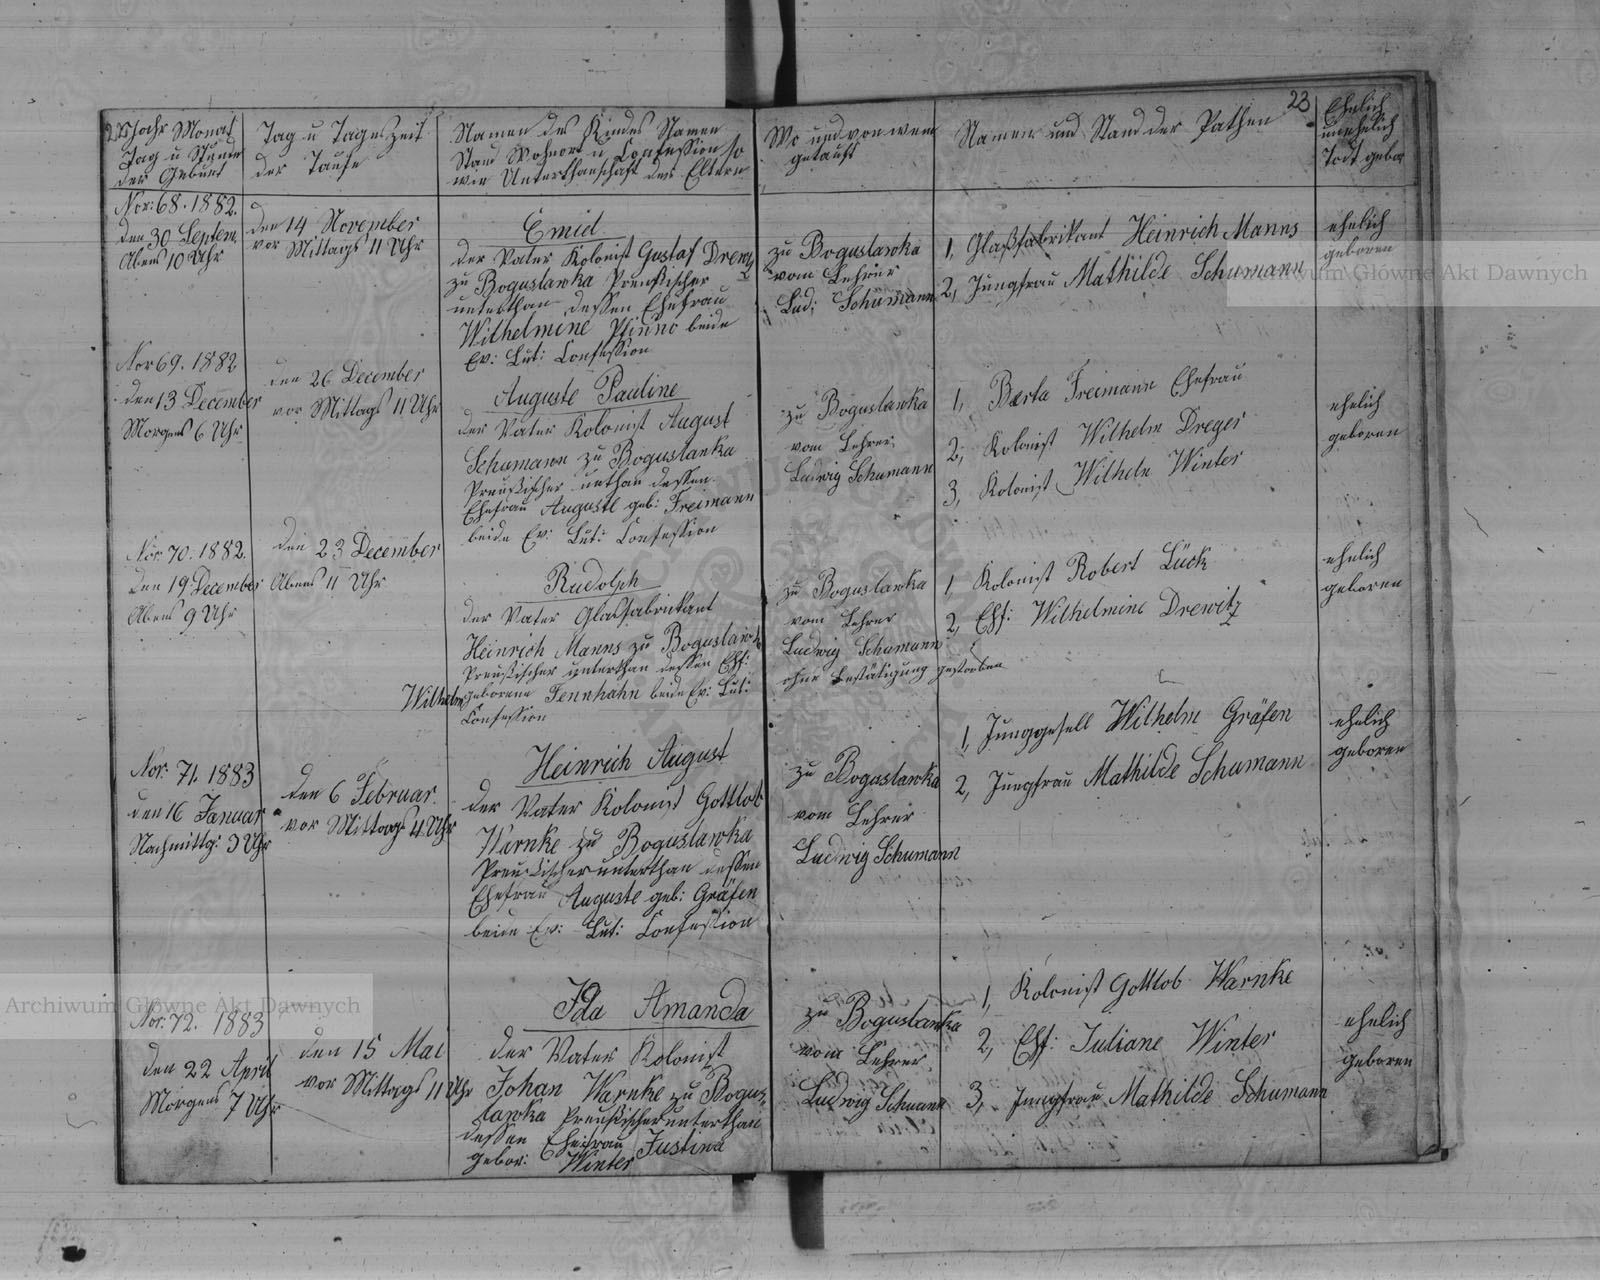 22
Jahr Monat
Tag u Stunde
der Geburt
Tag u Tages Zeit
der Taufe
Namen des Kindes Namen
Stand Wohnort u Confession so
wie Unterthanschaft des Eltern
Wo und von wem
getauft
Namen und Stand der Pathen
23
Ehelich
unehelich
Todt gebor
Nor: 68. 1882.
den 30 Septem.
Abens 10 Uhr
den 14 November
vor Mittags 11 Uhr
Emid
der Vater Kolonist Gustaf Drewitz
zu Boguslawka Preußischer
unterthan dessen Ehefrau
Wilhelmine beide
Ev: Lut: Confession
zu Boguslawka
vom Lehrer
Lud: Schumann
1, Glaßfabrikant Heinrich Manns
2, Jungfrau Mathilde Schumann
ehelich
geboren
Nor 69. 1882
den 13 December
Morgens 6 Uhr
den 26 December
vor Mittags 11 Uhr
Auguste Pauline
der Vater Kolonist August
Schumann zu Boguslawka
Preußischer unthan dessen
Ehefrau Auguste geb: Freimann
beide Ev: Lut: Confession
zu Boguslawka
vom Lehrer
Ludwig Schumann
1, Berta Freimann Ehefrau
2, Kolonist Wilhelm Dreger
3, Kolonist Wilheln Winter
ehelich
geboren
Nor. 70. 1882.
den 19 December
Abens 9 Uhr
den 23 December
Abens 11 Uhr
Rudolph
der Vater Glaßfabrikant
Heinrich Manns zu Boguslawka
Preußischer unterthan dessen Ehf:
Wilhelm geborene Tennhahn beide Ev: Lut:
Confession
zu Boguslawka
vom Lehrer
Ludwig Schumann
ohne Bestätigung gestorben
1, Kolonist Robert Lück
2, Ehf: Wilhelmine Drewitz
ehelich
geboren
Nor: 71. 1883
den 16 Januar
Nachmittg: 3 Uhr
den 6 Februar.
vor Mittags 11 Uhr
Heinrich August
der Vater Kolonist Gottlob
Warnke zu Boguslawka
Preußischerunterthan dessen
Ehefrau Auguste geb: Gräfen
beide Ev: Lut: Confession
zu Boguslawka
vom Lehrer
Ludwig Schumann
1, Junggesell Wilhelm Gräfen
2, Jungfrau Mathilde Schumann
ehelich
geboren
Nor: 72. 1883
den 22 April
Morgens 7 Uhr
den 15 Mai
vor Mittags 11 Uhr
Ida Amanda
der Vater Kolonist
Johan Warnke zu Bogus
lawka Preußischerunterthan
dessen Ehefrau Justine
gebor: Winter
zu Boguslawka
vom Lehrer
Ludwig Schuann
1, Kolonist Gottlob Warnke
2, Ehf: Juliane Winter
3, Jungfrau Mathilde Schumann
ehelich
geboren
Archiwum Główne Akt Dawnych
Archiwum Główne Akt Dawnych